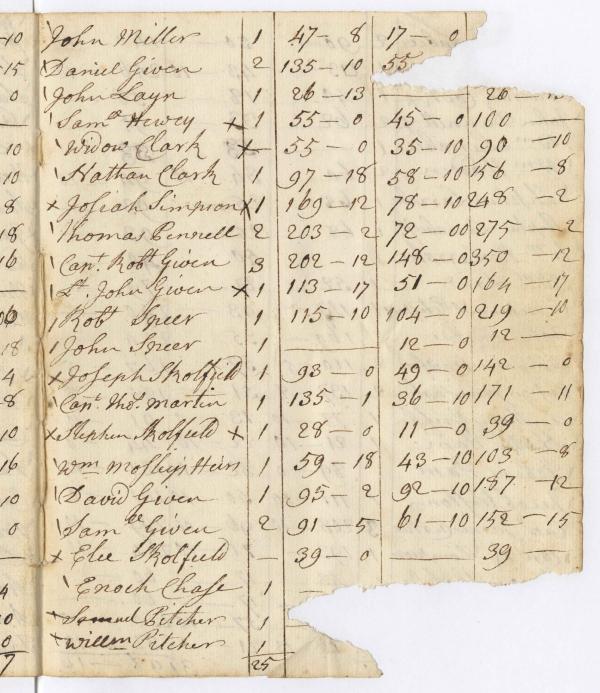 10 John Miller 1 47-8 17-0
15 Daniel Given 2 135-10 55
0 John Layn 1 26-13 — 26-13
Samll Hewey x 1 55-0 45-0 100 —
10 Widow Clark x — 55-0 35-10 90-10
10 Nathan Clark 1 97-18 58-10 156-8
8 x Josiah Simpson x 1 169-12 78-10 248-2
18 Thomas Pennell 2 203-2 72-00 275-2
16 Capt. Robt Given 3 202-12 148-0 350-12
Lt. John Given x 1 113-17 51-0 164-17
Robt Speer 1 115-10 104-0 219-10
18 John Speer 1 — 12-0 12 —
4 x Joseph Skolfield 1 93-0 49-0 142-0
8 Capt. Tho. Martin 1 135-1 36-10 171-11
10 x Stephen Skolfield x 1 28-0 11-0 39-0
16 Wm Heirs 1 59-18 43-10 103-8
10 David Given 1 95-2 92-10 187-12
0 Samll Given 2 91-5 61-10 152-15
x Skolfield — 39-0 — 39 —
4 Enoch Chase 1 —
0 Samuel Pitcher 1
0 Willm Pitcher 1
7 25